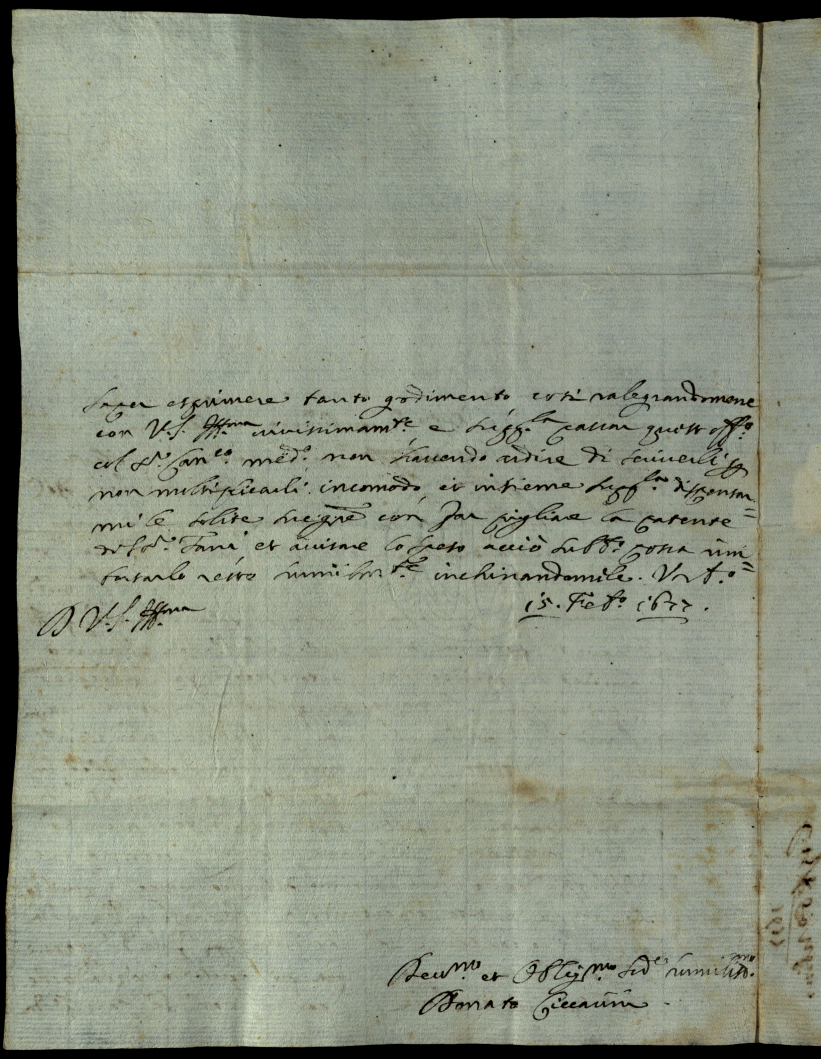 saper esprimere tanto godimento così ralegrandomene
con V.S. Ill.ma vivissimam.te e supp.la passar questo off.o
col S.r Can.co med.o non havendo ardire di scriverli p
non multiplicarli incomodo, et insieme supp.la dispensar=
mi le solite con far pigliare la patente
del S.r et avisare lo speso acciò sub.o possa rim=
borsarlo resto humilm.te inchinandomile.
15. Feb.o 1677.
D V.S. Ill.ma
Dev.mo et Oblig.mo humiliss.o
Donato
1677